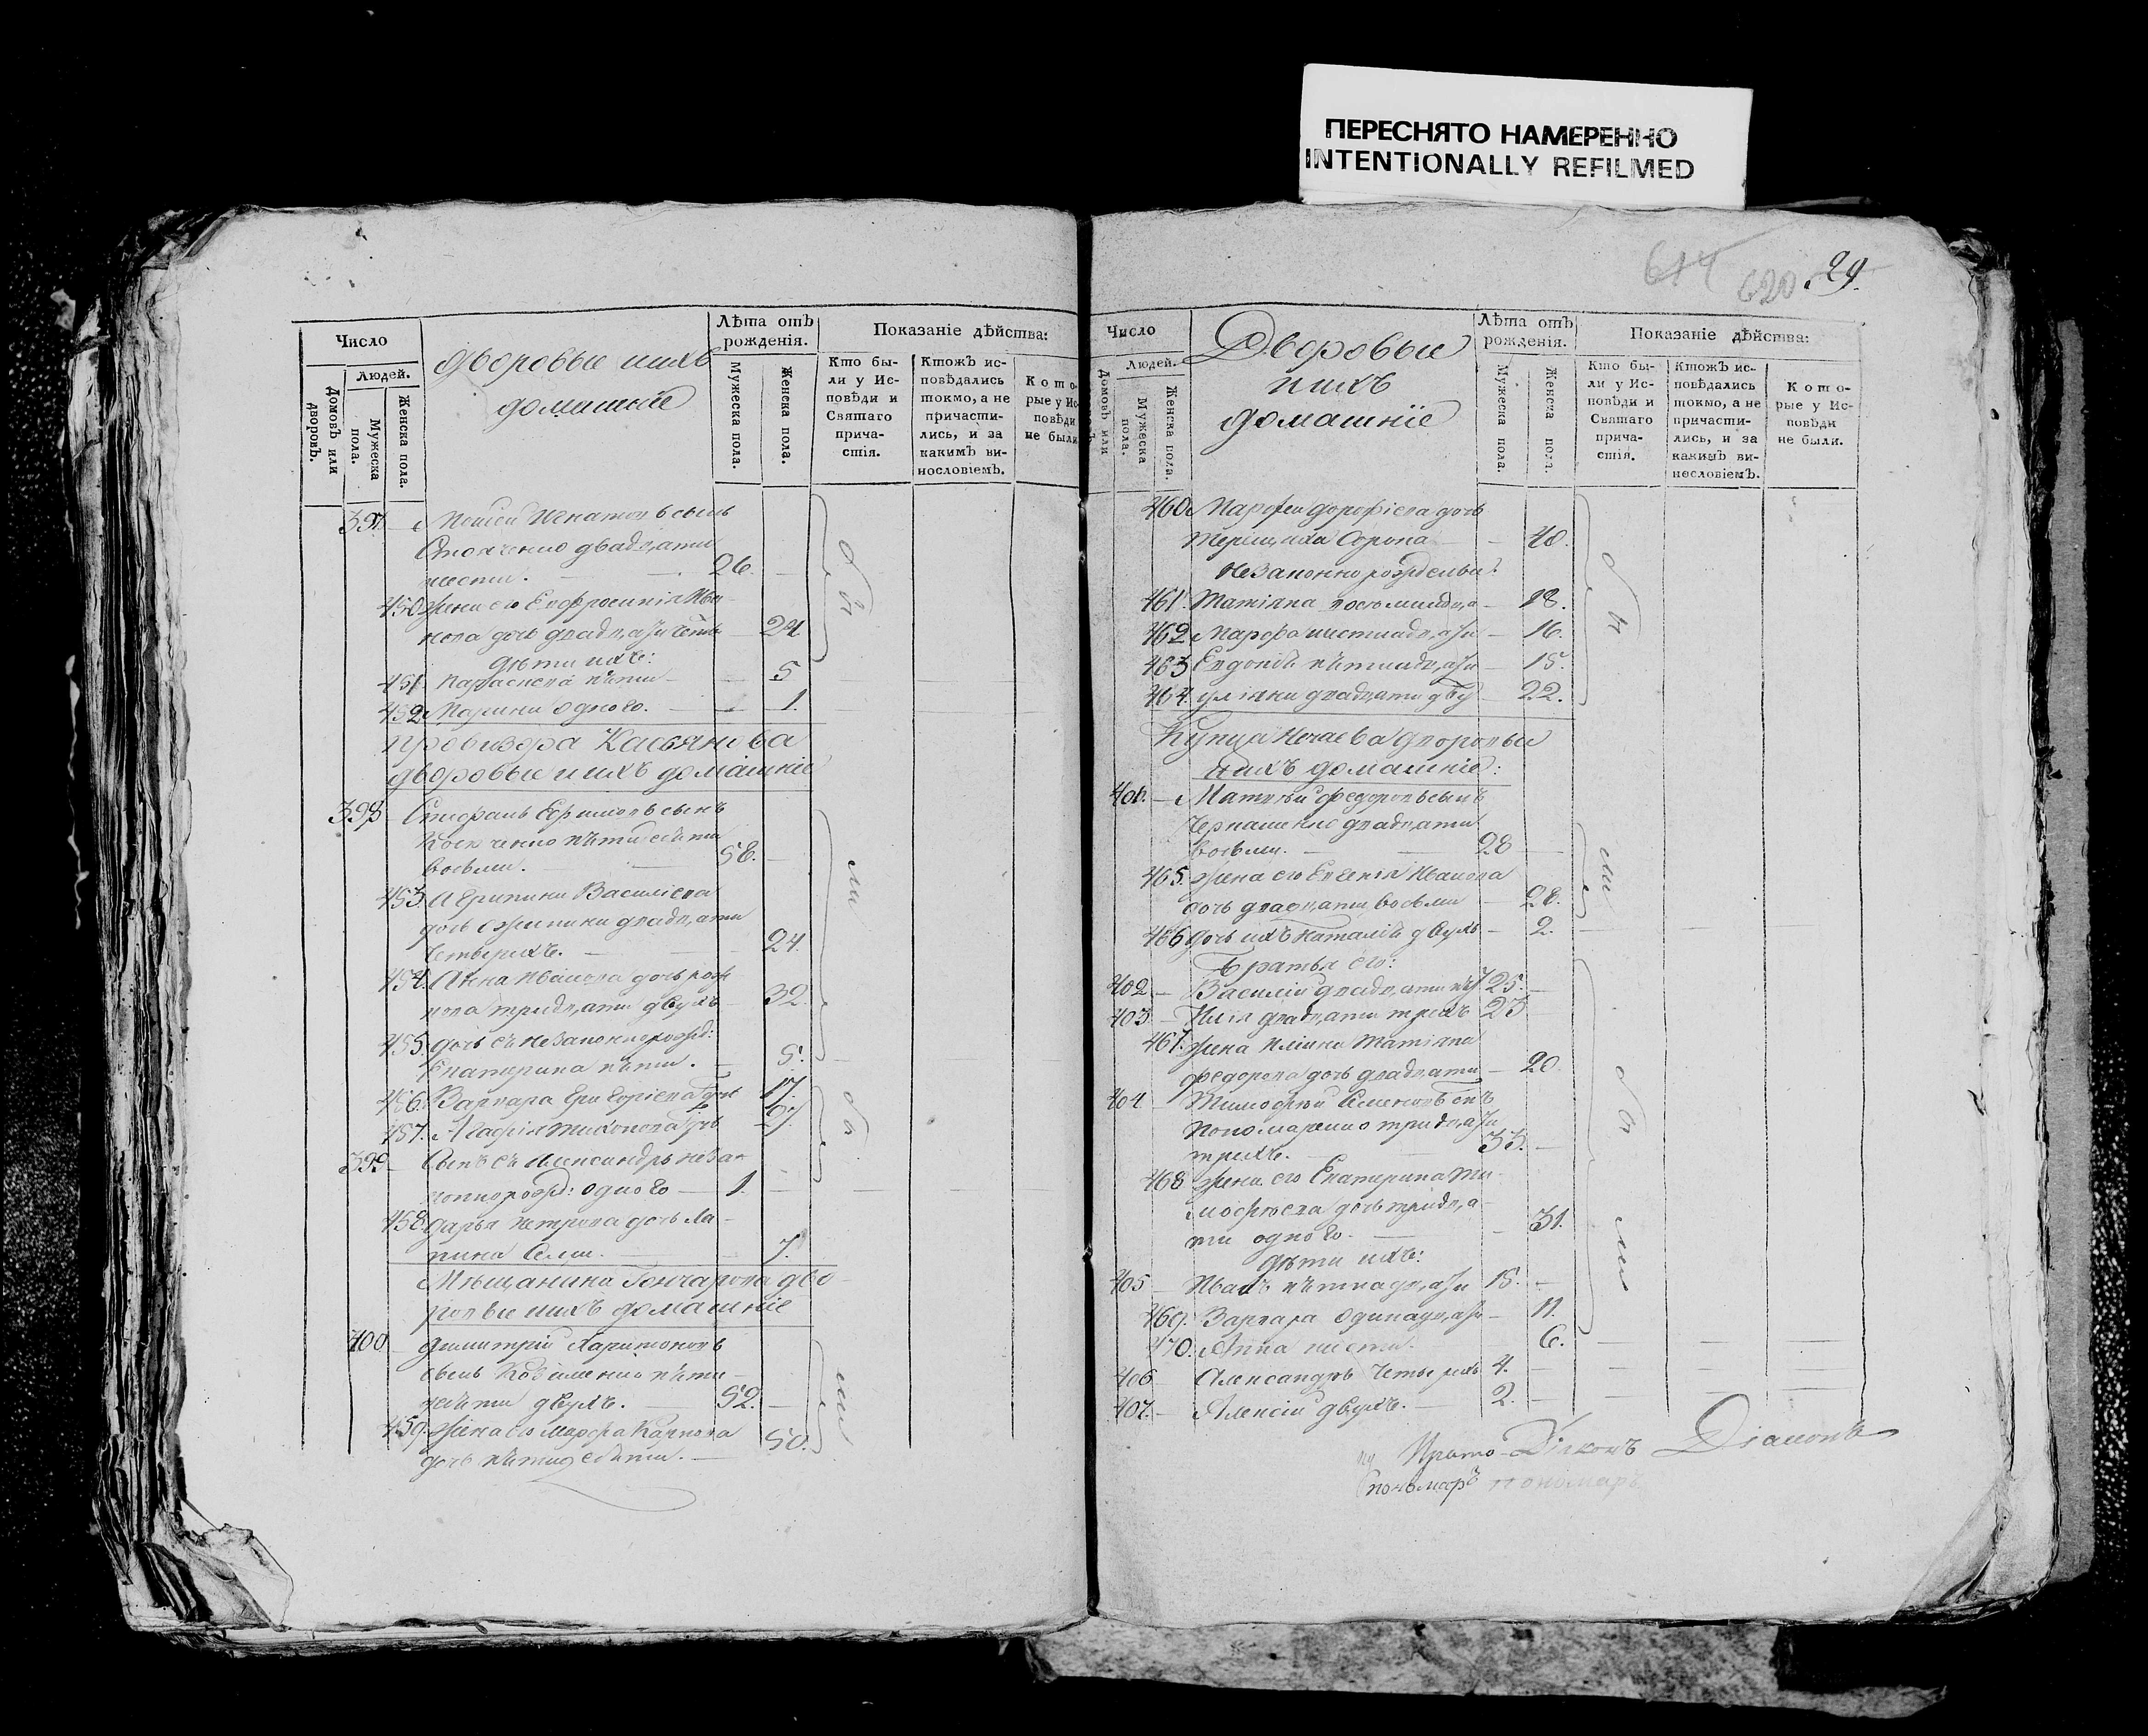 ПЕРЕСНЯТО НАМЕРЕННО
INTENTIONALLY REFILMED
614 620 29.
Число
Людей.
Домовъ или дворовъ.
Мужеска пола.
Женска пола.
дворовые ихъ
домашніе
Лѣта отъ рожденія.
Мужеска пола.
Женска пола.
Показаніе дѣйства:
Кто бы-
ли у Ис-
повѣди и
Святаго
прича-
стія.
Ктожъ ис-
повѣдались
токмо, а не
причасти-
лись, и за
какимъ ви-
нословіемъ.
Кото-
рые у Ис-
повѣди
не были.
397 сынъ
двадцати
шести. 26.
450. жена его Евфросинія Ива-
нова дочь 24
дѣти ихъ:
451. Параскева пяти 5
452. Марина одного. 1.
провизора Касьянова
дворовые ихъ домашніе
398 Стефанъ Ефимовъ сынъ
пятидесяти
восьми. 58.
453. Агрипина Василіева
дочь двадцати
четырехъ. 24.
454. Анна Иванова дочь
тридцати двухъ 32.
455. дочь еѣ незаконнорожд:
Екатерина пяти. 5.
456. Варвара Григоріева 17.
457. Агафія Тихонова 27.
399 Сынъ еѣ Александръ незак
оннорожд: одного 1.
458. дарья Петрова дочь Ла-
пина семи. 7.
Мѣщанина Гончарова дво-
ровые ихъ домашніе
400 димитрій Харитоновъ
сынъ Коваленко пяти-
десяти двухъ. 52.
459. жена его Марфа Карпова
дочь пятидесяти. 50.
Число
Людей.
Домовъ или
Мужеска пола.
Женска пола.
Дворовые
ихъ
домашніе
Лѣта отъ рожденія.
Мужеска пола.
Женска пола.
Показаніе дѣйства:
Кто бы-
ли у Ис-
повѣди и
Святаго
прича-
стія.
Ктожъ ис-
повѣдались
токмо, а не
причасти-
лись, и за
какимъ ви-
нословіемъ.
Кото-
рые у Ис-
повѣди
не были.
460. дорофіева дочь
Сорока 40.
незаконно рожденны:
461. Татіяна восемнадца 18.
462 Марфа шестнадцати 16.
463 Евдокія пятнадцати 15.
464. уліяна двадцати дву 22.
Купца Нечаева дворовые
ихъ домашніе:
401. Матвѣй Федоровъ сынъ
двадцати
восьми. 28
465. жена его Евгенія Иванова
дочь двадцати восьми 28.
466 дочь ихъ Наталія двухъ 2.
Братья его:
402 Василій двадцати пяти 25.
403 Илія двадцати трехъ 23
467. жена Иліина Татіяна
Федорова дочь двадцати 20.
404 Тимофѣй Семеновъ снъ
Пономаренко тридцати
трехъ. 33.
468 жена его Екатерина Ти-
мофѣева дочь тридца-
ти одного. 31.
дѣти ихъ:
405 Иванъ пятнадцати 15.
469. Варвара одинадцати 11.
470. Анна шести. 6.
406 Александръ четырехъ 4.
407. Алексій двухъ. 2.
были
были
были
Діаконъ
пономаръ пономаръ